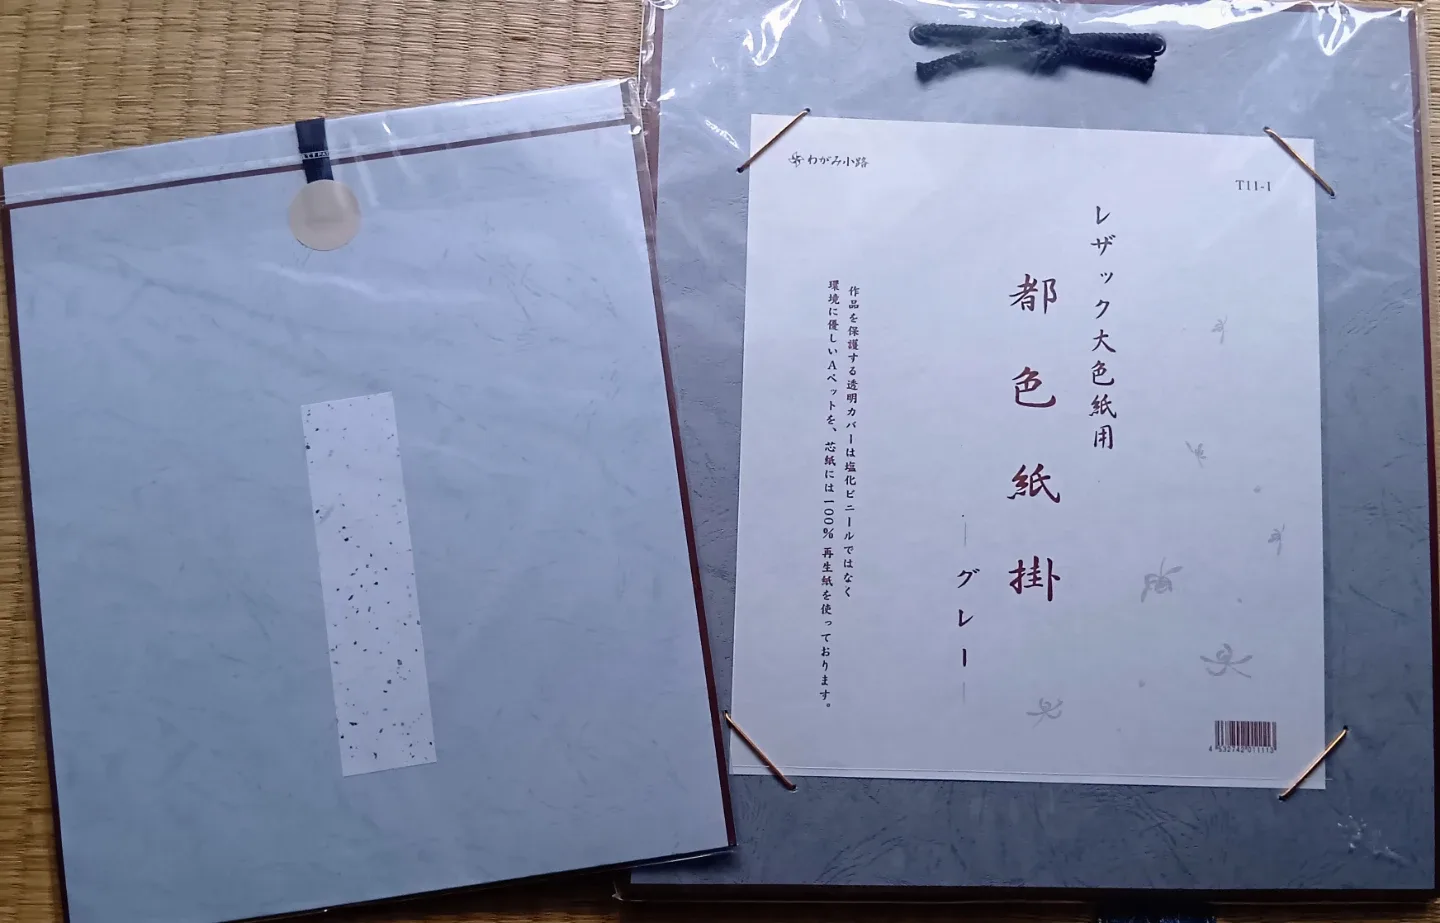 わがみ小路
T11-1
レザック大色紙用
都色紙掛
―グレー―
作品を保護する透明カバーは塩化ビニールではなく
環境に優しいAペットを、芯紙には100%再生紙を使っております。
4 530742 011113